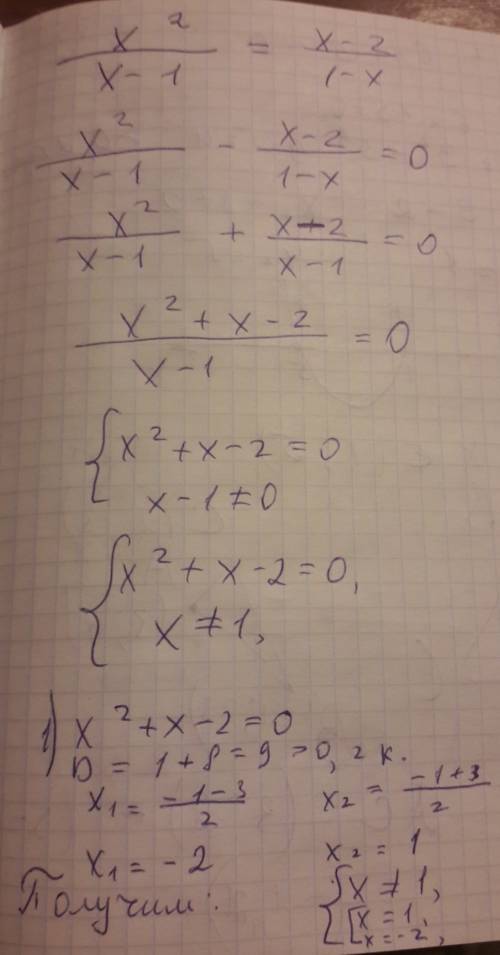 x²/(x-1) = (x-2)/(1-x)
x²/(x-1) - (x-2)/(1-x) = 0
x²/(x-1) + (x-2)/(x-1) = 0
(x²+x-2)/(x-1) = 0
{ x²+x-2=0
x-1≠0
{ x²+x-2=0,
x≠1,
1) x²+x-2=0
D = 1+8=9>0, 2 к.
x₁ = (-1-3)/2 x₂ = (-1+3)/2
x₁ = -2 x₂ = 1
Получим: { x≠1,
[ x=1,
x=-2,